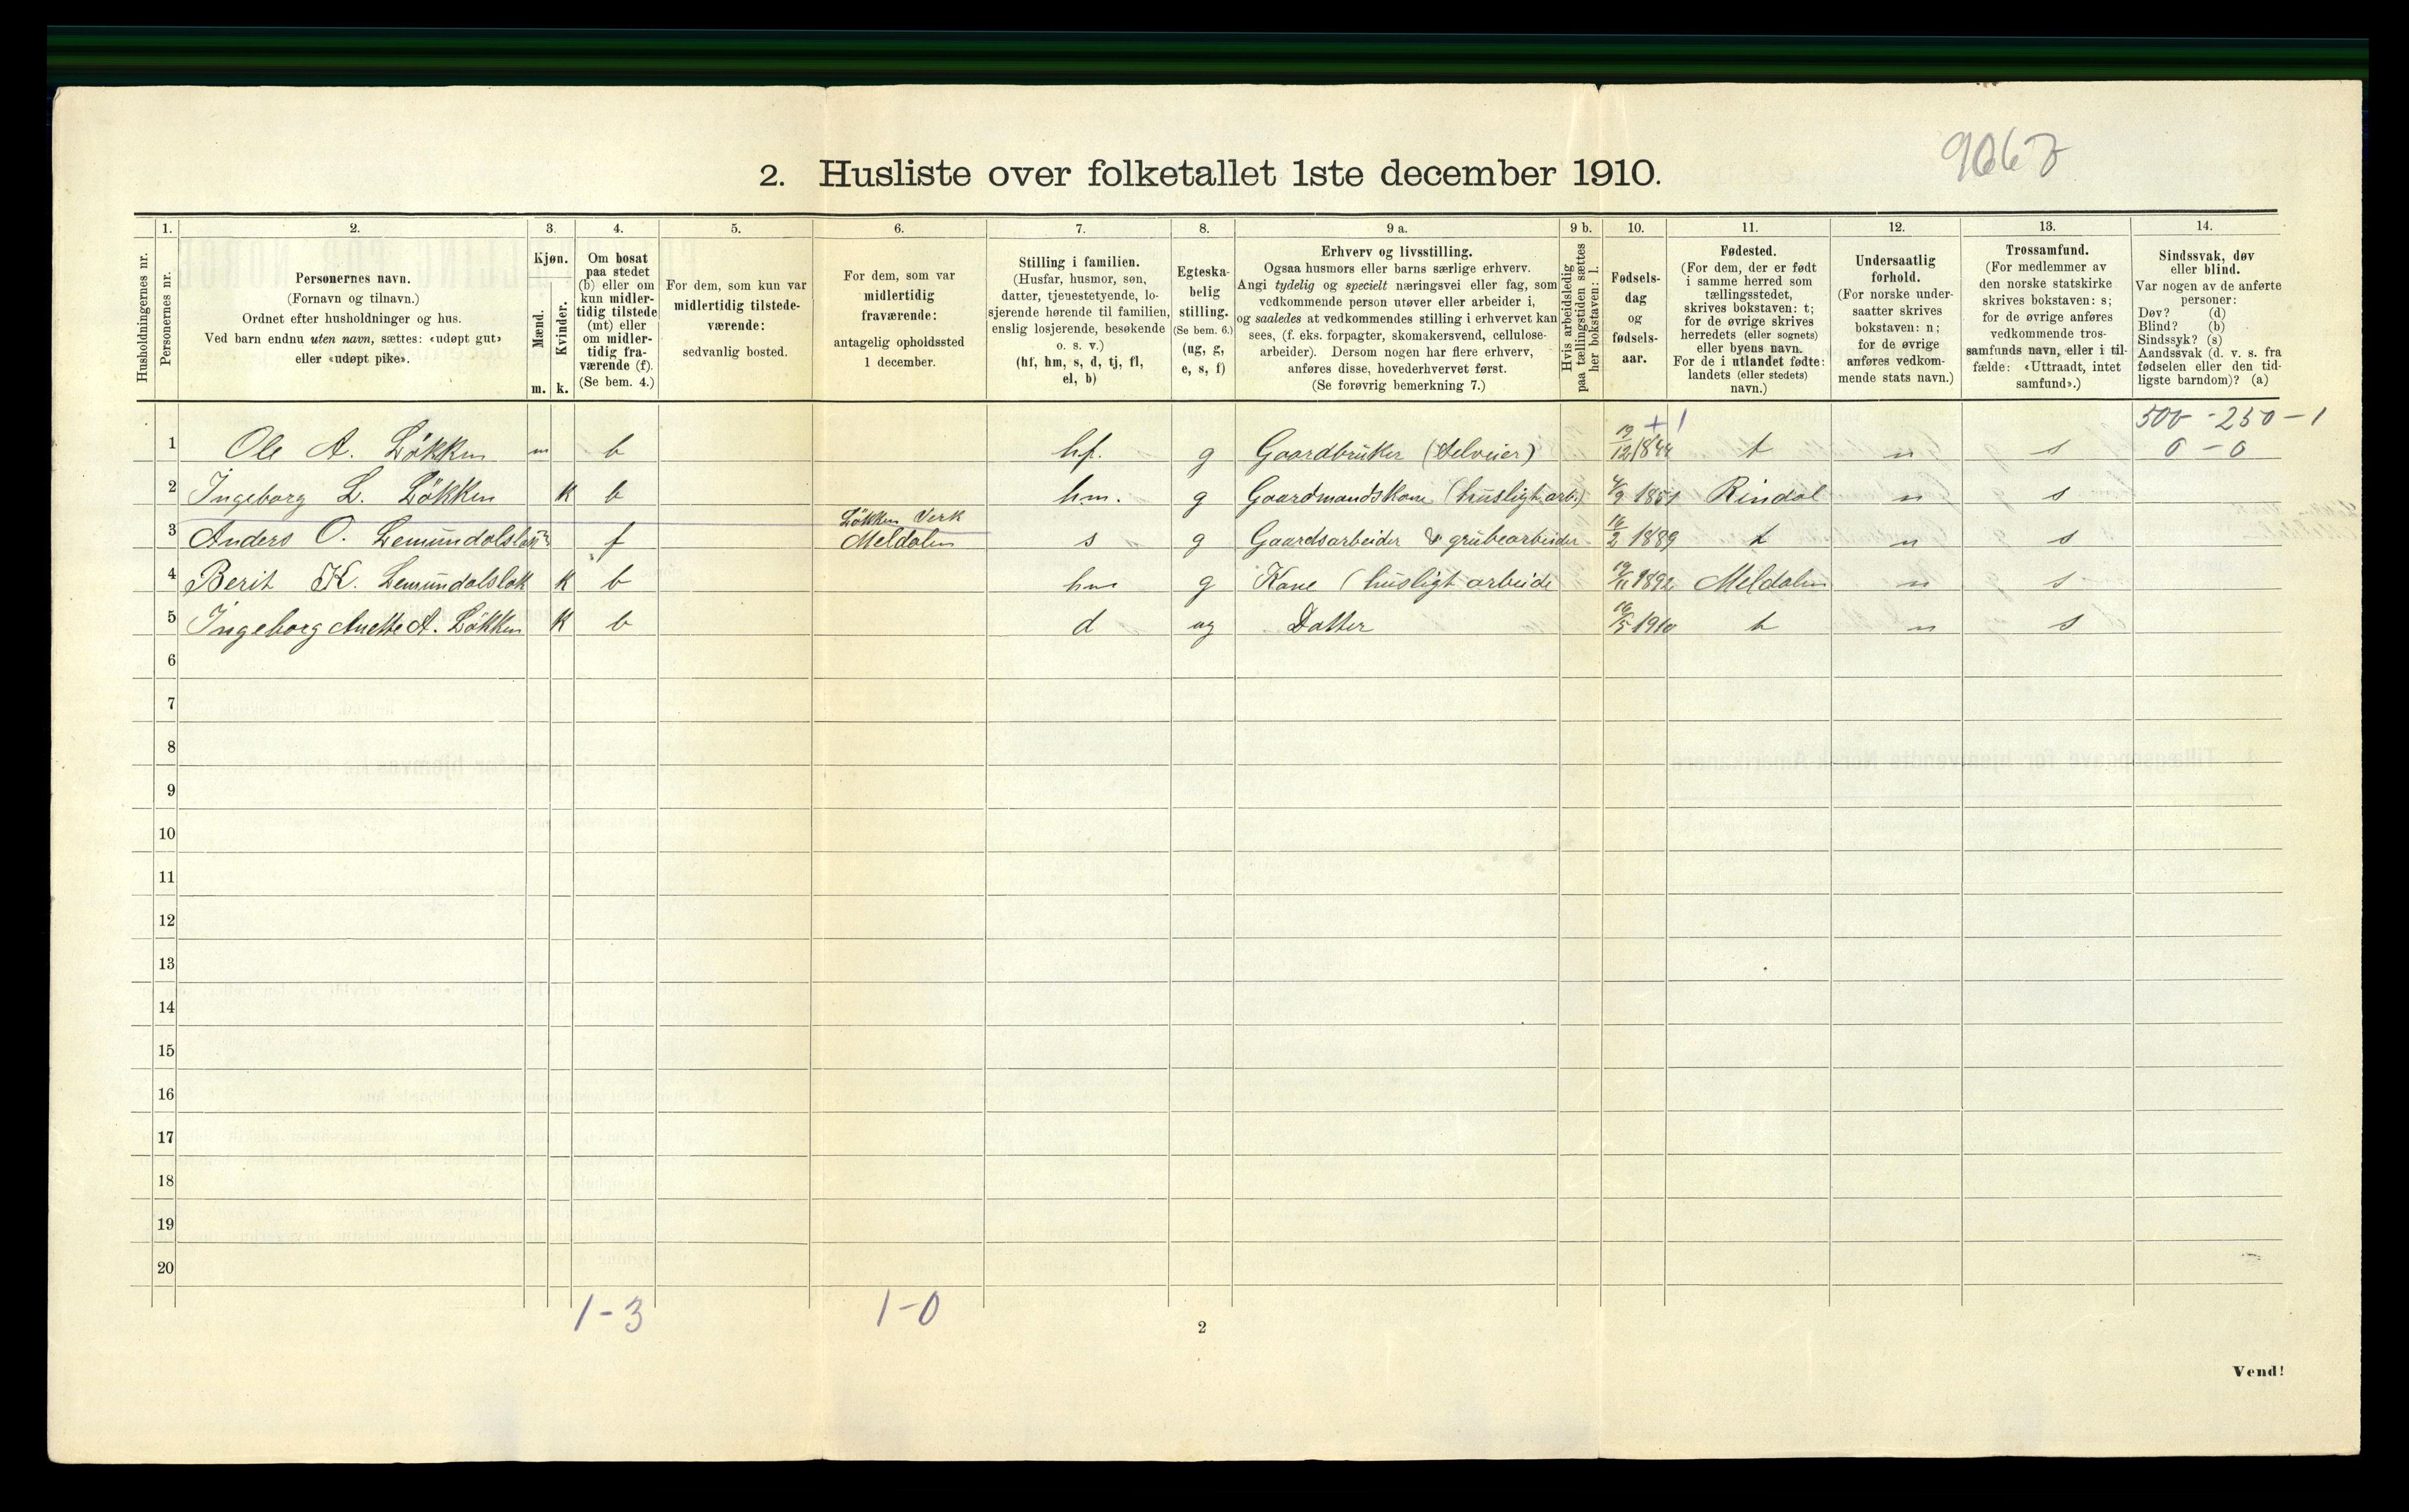 2. Husliste over folketallet 1ste december 1910.
Husholdningernes nr.
1.
Personernes nr.
2.
Personernes navn.
(Fornavn og tilnavn.)
Ordnet efter husholdninger og hus.
Ved barn endnu uten navn, sættes: «udøpt gut»
eller «udøpt pike».
3.
Kjøn.
Mænd.
m.
Kvinder.
k.
4.
Om bosat
paa stedet
(b) eller om
kun midler-
tidig tilstede
(mt) eller
om midler-
tidig fra-
værende (f).
(Se bem. 4.)
5.
For dem, som kun var
midlertidig tilstede-
værende:
sedvanlig bosted.
6.
For dem, som var
midlertidig
fraværende:
antagelig opholdssted
1 december.
7.
Stilling i familien.
(Husfar, husmor, søn,
datter, tjenestetyende, lo-
sjerende hørende til familien,
enslig losjerende, besøkende
o. s. v.)
(hf, hm, s, d, tj, fl,
el, b)
8.
Egteska-
belig
stilling.
(Se bem. 6.)
(ug, g,
e, s, f)
9 a.
Erhverv og livsstilling.
Ogsaa husmors eller barns særlige erhverv.
Angi tydelig og specielt næringsvei eller fag, som
vedkommende person utøver eller arbeider i,
og saaledes at vedkommendes stilling i erhvervet kan
sees, (f. eks. forpagter, skomakersvend, cellulose-
arbeider). Dersom nogen har flere erhverv,
anføres disse, hovederhvervet først.
(Se forøvrig bemerkning 7.)
9 b.
Hvis arbeidsledig
paa tællingstiden sættes
her bokstaven: l.
10.
Fødsels-
dag
og
fødsels-
aar.
11.
Fødested.
(For dem, der er født
i samme herred som
tællingsstedet,
skrives bokstaven: t;
for de øvrige skrives
herredets (eller sognets)
eller byens navn.
For de i utlandet fødte:
landets (eller stedets)
navn.)
12.
Undersaatlig
forhold.
(For norske under-
saatter skrives
bokstaven: n;
for de øvrige
anføres vedkom-
mende stats navn.)
13.
Trossamfund.
(For medlemmer av
den norske statskirke
skrives bokstaven: s;
for de øvrige anføres
vedkommende tros-
samfunds navn, eller i til-
fælde: «Uttraadt, intet
samfund».)
14.
Sindssvak, døv
eller blind.
Var nogen av de anførte
personer:
Døv? (d)
Blind? (b)
Sindssyk? (s)
Aandssvak (d. v. s. fra
fødselen eller den tid-
ligste barndom)? (a)
+1
500 - 250 - 1
0 - 0
1 Ole A. Løkken m b hf. g Gaardbruker (Selveier) 19/12 1844 t n s
2 Ingeborg L. Løkken k b hm. g Gaardmandskone (husligt arb.) 4/9 1851 Rindal n s
Løkken Verk
3 Anders O. f Meldalen s g Gaardsarbeider & grubearbeider 16/2 1889 t n s
4 Berit K. Lemundalsløk k b hm g Kone (husligt arbeide 19/11 1892 Meldalen n s
5 Ingeborg Anette A. Løkken k b d ug Datter 16/5 1910 t n s
6
7
8
9
10
11
12
13
14
15
16
17
18
19
20
1-3
1-0
2
Vend!